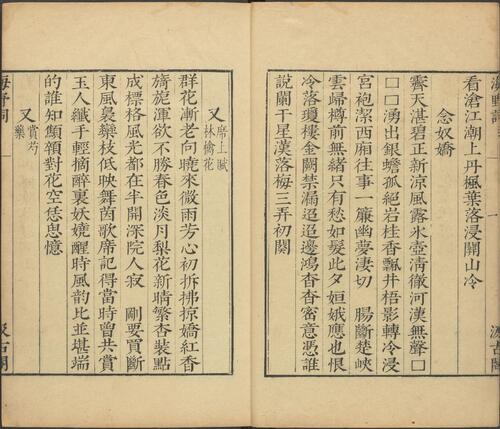 看滄江潮上丹楓葉落浸關山冷
念奴嬌
霽天湛碧正新涼風露氷壺清徹河漢無聲囗
囗囗湧出銀蟾孤絕岩桂香飄井梧影轉冷浸
宮袍潔西廂往事一簾幽夢凄切 腸斷楚峽
雲歸樽前無緒只有愁如髮此夕姮娥應也恨
冷落瓊樓金闕禁漏迢迢邊鴻杳杳密意憑誰
說闌干星漢落梅三弄初闋
又 席上賦林檎花
群花漸老向曉來微雨芳心初拆拂掠嬌紅香
旖旎渾欲不勝春色淡月梨花新晴繁杏裝點
成標格風光都在半開深院人寂 剛要買斷
東風裊欒枝低映舞茵歌席記得當時曾共賞
玉人纖手輕摘醉裏妖嬈醒時風韵比並甚端
的誰知顦顇對花空恁思憶
又 賞芍藥